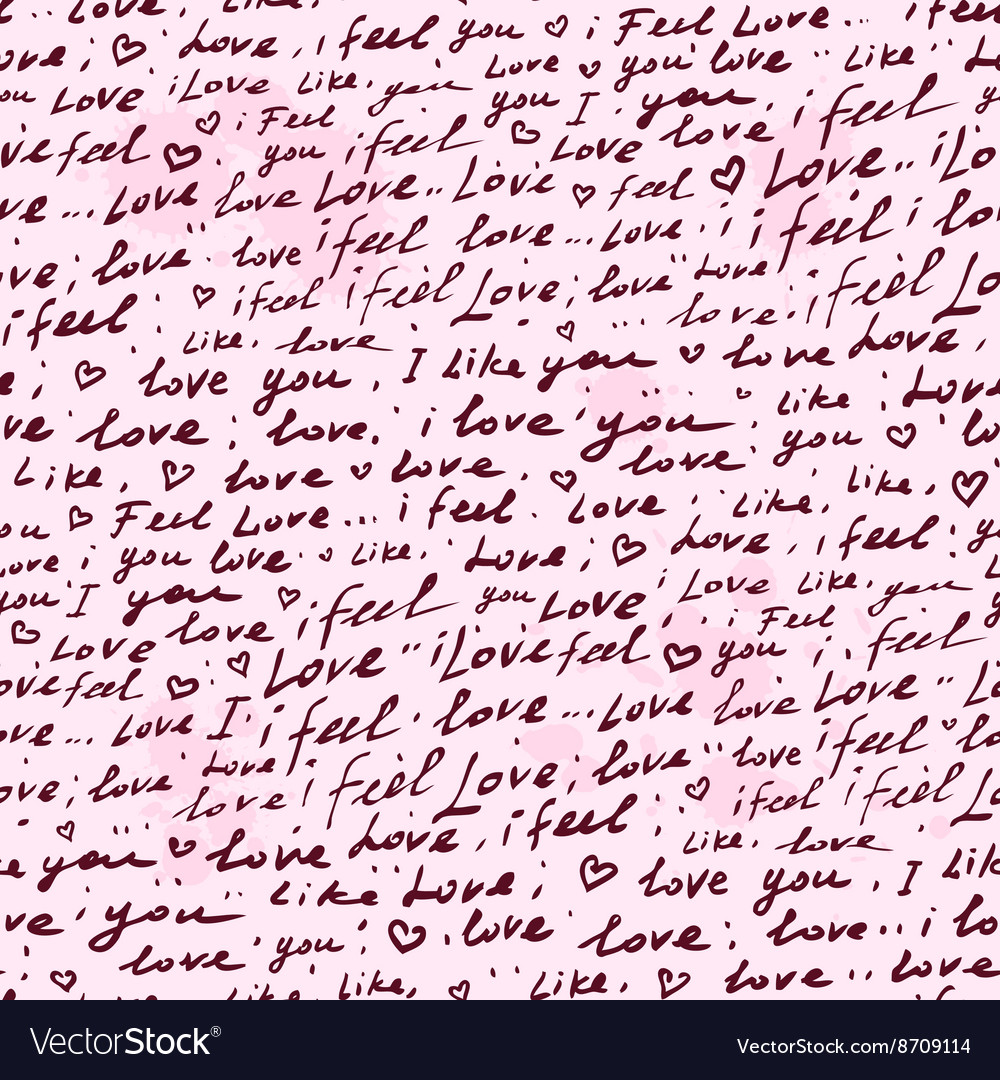 Love, Like, i feel
ove ; Love, i feel you i Feel Love...
Love you love Like Lo
ou Love iLove Like, you you I you, i feel y
i Feel
ve feel you i feel Love love
ve... Love love Love.. Love feel Love.. iLo
ove; love love i feel love... Love. i i feel i lo
i feel i feel i feel Love; love Love i feel Lo
Like, love love.
e; love you, I Like you love Love,
ve love; love, i love you Like Love
Like, love love, love you lo
ou Feel Love... i feel. Love Like, Like,
ove i you love Like, Love; Love, i feel y
you I you i feel you Love i Love Like, you
Love love i Feel
ovefeel Love iLovefeel you i. feel
ove... Love I i feel. love... Love love Love Lo
ove; love Love i feel Love; love love i feel lo
love i feel i feel Lo
e you love Love, i feel Like, love
ve you Like Love; love you, I Like
love you love love; love.. i lo
Like, Like, Like, love.. love
VectorStock®
VectorStock.com/8709114